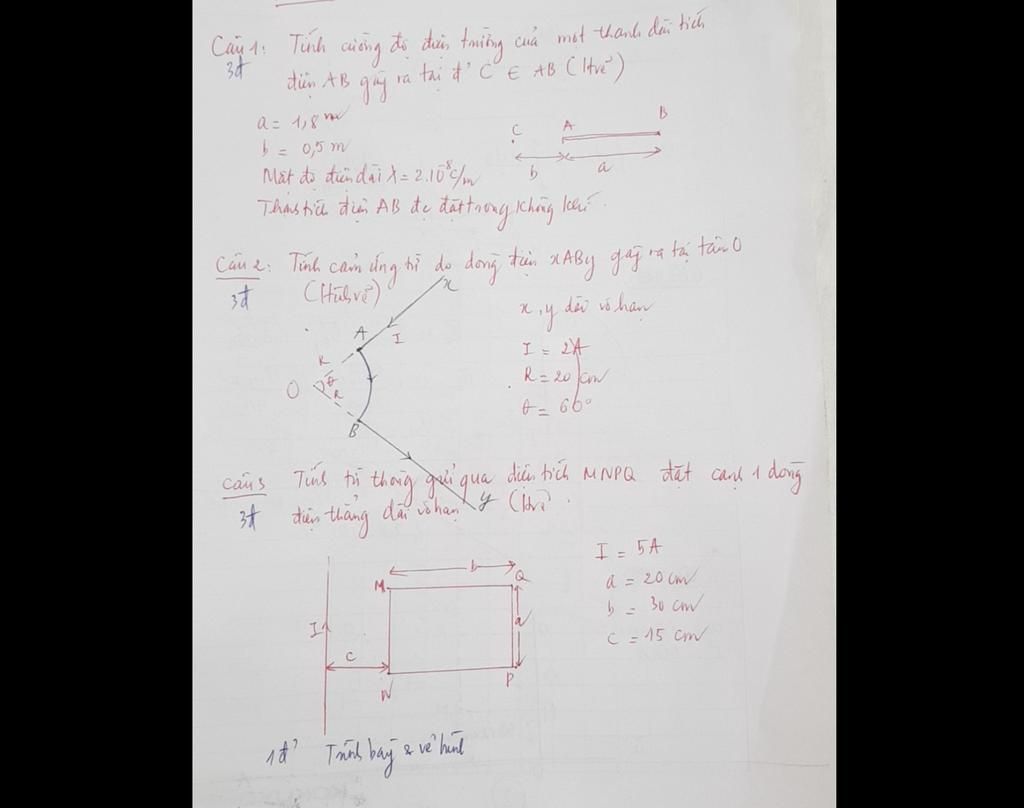 Câu 1: Tính cường độ điện trường của một thanh dài tích
3đ
điện AB gây ra tại đ' C ∈ AB (Hvẽ)
a = 1,8 m
b = 0,5 m
C A B
b a
Mật độ điện dài λ = 2.10⁻⁸ C/m
Thanh tích điện AB đc đặt trong không khí.
Câu 2: Tính cảm ứng từ do dòng điện xABy gây ra tại tâm O
3đ
(Hình vẽ)
x
x, y dài vô hạn
A I
I = 2A
R
R = 20 cm
O θ
R
θ = 60°
B
Câu 3 Tính từ thông gửi qua diện tích MNPQ đặt cạnh 1 dòng
3đ
điện thẳng dài vô hạn (Hvẽ)
y
I = 5A
b
M Q
a = 20 cm
b = 30 cm
I a
c = 15 cm
c
N P
1đ' Trình bày & vẽ hình